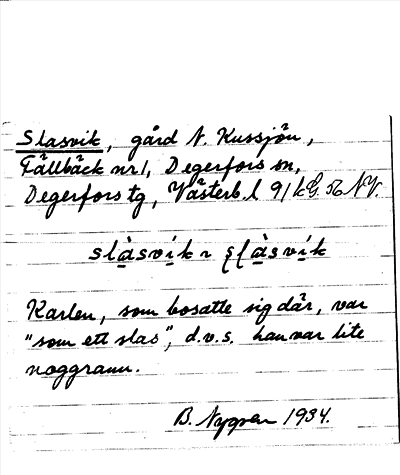 Slasvik, gård N. Kussjön,
Fällbäck nr 1, Degerfors sn,
Degerfors tg, Västerb. l
slàsvik ~ şļàsvik
Karlen, som bosatte sig där, var
"som ett slas", d.v.s. han var lite
noggrann.
B. Nygren 1934.